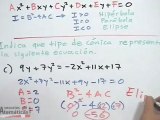 Ax²+Bxy+Cy²+Dx+Ey+F=0
I=B²-4AC I>0 Hipérbola
I=0 Parábola
I<0 Elipse
Indica que tipo de cónica representa
la siguiente ecuación.
c) 9y+7y²=-2x²+11x+17
2x²+7y²-11x+9y-17=0
A=2
B=0
B²-4AC
(0)²-4(2)(7)
0-(56)
Eli